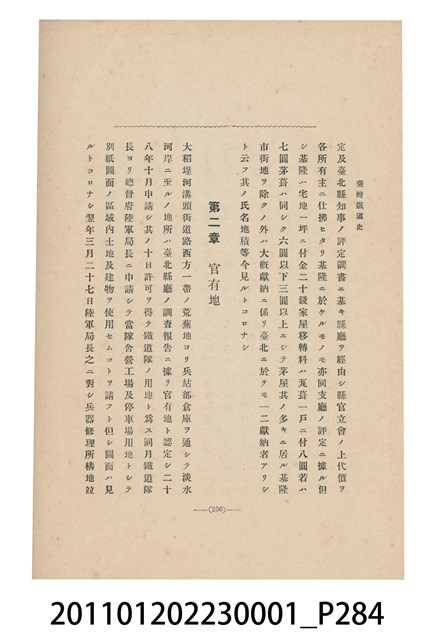 臺灣鐵道史
定及臺北縣知事ノ評定調書ニ基キ縣廳ヲ經由シ縣官立會ノ上代價ヲ
各所有主ニ仕拂ヒタリ基隆ニ於ケルモノモ亦同支廳ノ評定ニ據ル但
シ基隆ハ宅地一坪ニ付金二十錢家屋移轉料ハ瓦葺一戸ニ付八圓若ハ
七圓茅葺ハ同シク六圓以下三圓以上ニシテ茅屋其ノ多キニ居ル基隆
市街地ヲ除クノ外ハ大概獻納ニ係リ臺北ニ於テモ一二獻納者アリシ
ト云フ其ノ氏名地積等今見ルトコロナシ
第二章 官有地
大稻埕河溝頭街道路西方一帶ノ荒蕪地ヨリ兵站部倉庫ヲ通シテ淡水
河岸ニ至ルノ地所ハ臺北縣廳ノ調査報告ニ據リ官有地ト認定シ二十
八年十月申請シ其ノ十日許可ヲ得テ鐵道隊ノ用地ト爲ス同月鐵道隊
長ヨリ總督府陸軍局長ニ申請シテ當隊舎營工場及停車場用地トシテ
別紙圖面ノ區域内土地及建物ヲ使用セムコトヲ請フト但シ圖面ハ見
ルトコロナシ翌年三月二十七日陸軍局長之ニ對シ兵器修理所構地竝
(256)
201101202230001_P284